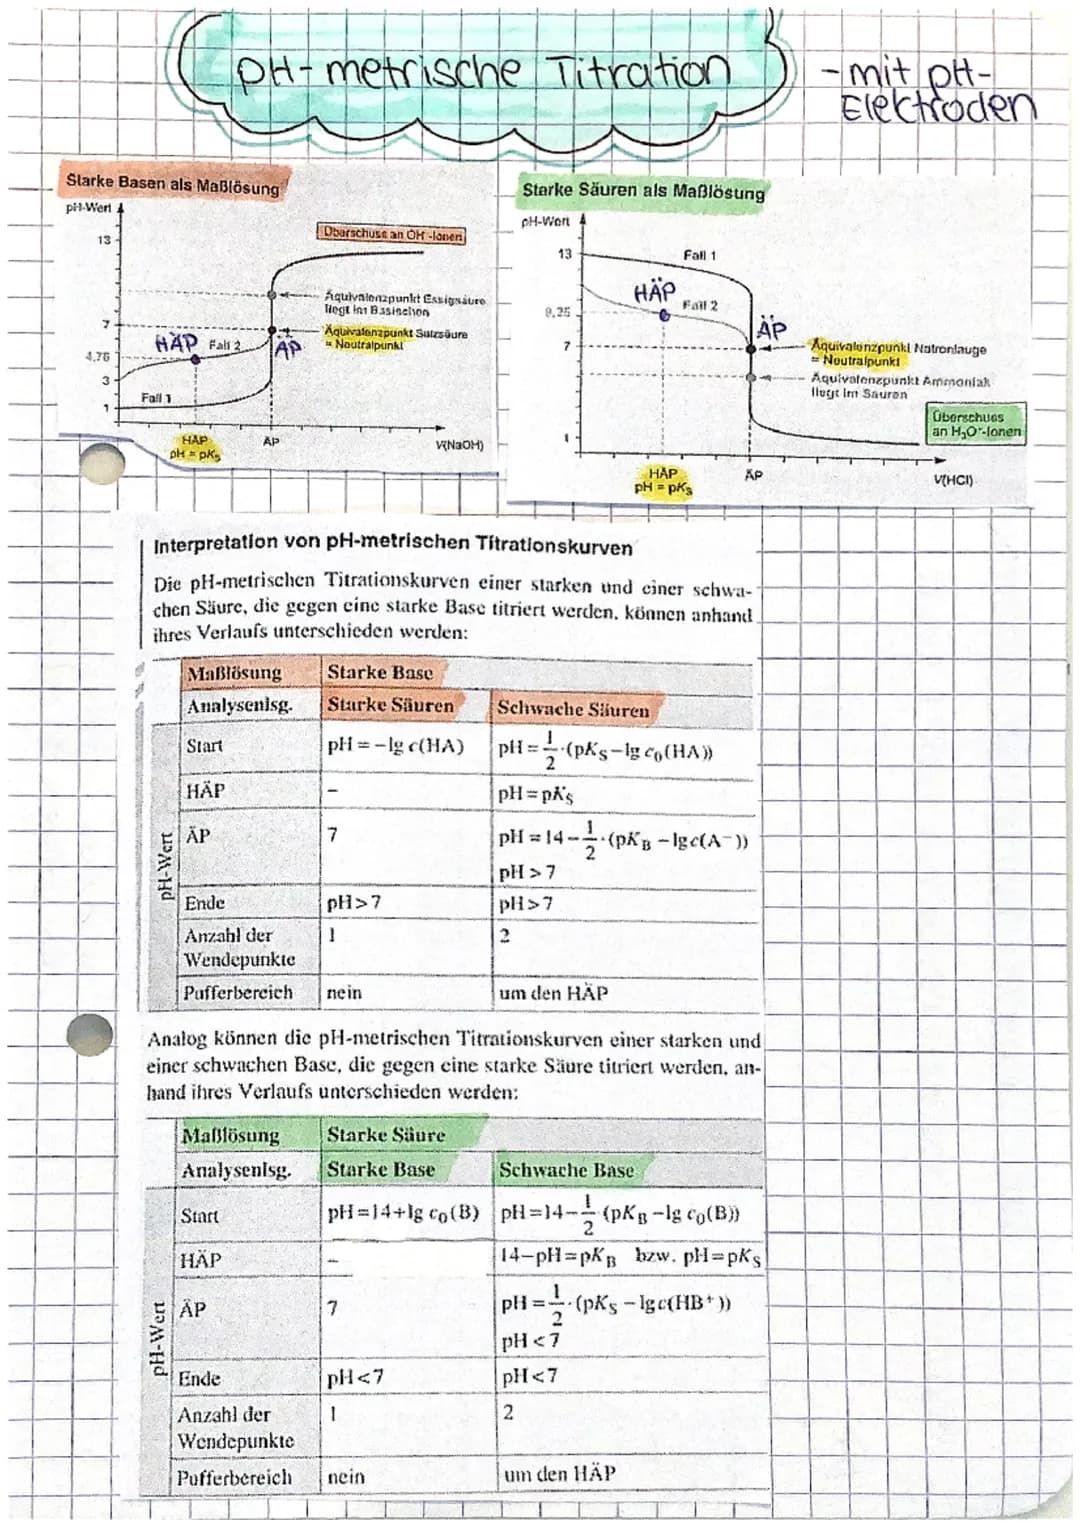 pH-metrische Titration
-mit pH-
Elektroden
Starke Basen als Maßlösung
pH-Wert
13
7
4,76
3
1
Überschuss an OH⁻-Ionen
Äquivalenzpunkt Essigsäure
liegt im Basischen
Äquivalenzpunkt Salzsäure
= Neutralpunkt
HÄP
Fall 2
ÄP
Fall 1
HÄP
pH = pKs
ÄP
V(NaOH)
Starke Säuren als Maßlösung
pH-Wert
13
9,25
7
1
Fall 1
HÄP
Fall 2
ÄP
Äquivalenzpunkt Natronlauge
= Neutralpunkt
Äquivalenzpunkt Ammoniak
liegt im Sauren
Überschuss
an H₃O⁺-Ionen
HÄP
pH = pKs
ÄP
V(HCl)
Interpretation von pH-metrischen Titrationskurven
Die pH-metrischen Titrationskurven einer starken und einer schwa-
chen Säure, die gegen eine starke Base titriert werden, können anhand
ihres Verlaufs unterschieden werden:
Maßlösung Starke Base
Analysenlsg. Starke Säuren Schwache Säuren
pH-Wert
Start pH = −lg c(HA) pH = 1/2 · (pKS − lg c₀(HA))
HÄP – pH = pKS
ÄP 7 pH = 14 − 1/2 · (pKB − lg c(A⁻))
pH > 7
Ende pH > 7 pH > 7
Anzahl der 1 2
Wendepunkte
Pufferbereich nein um den HÄP
Analog können die pH-metrischen Titrationskurven einer starken und
einer schwachen Base, die gegen eine starke Säure titriert werden, an-
hand ihres Verlaufs unterschieden werden:
Maßlösung Starke Säure
Analysenlsg. Starke Base Schwache Base
pH-Wert
Start pH = 14 + lg c₀(B) pH = 14 − 1/2 · (pKB − lg c₀(B))
HÄP – 14 − pH = pKB bzw. pH = pKS
ÄP 7 pH = 1/2 · (pKS − lg c(HB⁺))
pH < 7
Ende pH < 7 pH < 7
Anzahl der 1 2
Wendepunkte
Pufferbereich nein um den HÄP